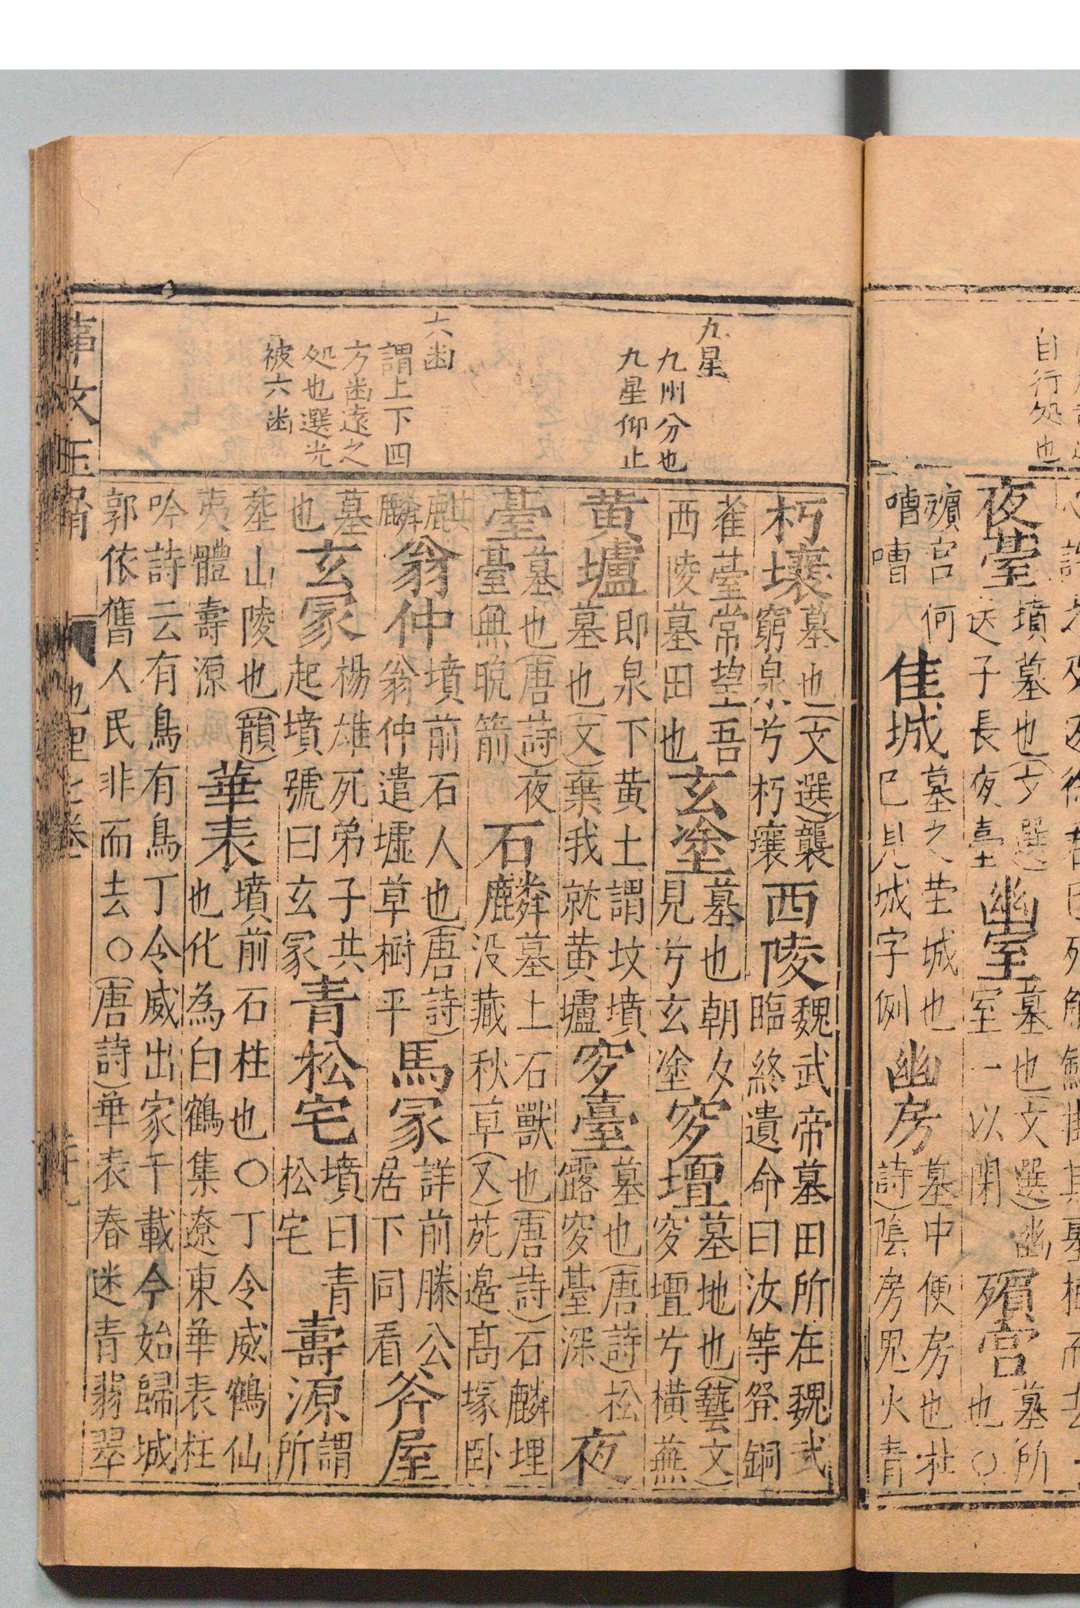 自行処也
夜臺墳墓也(文選)送子長夜臺幽室墓也(文選)幽室一以閉殯宮墓所也○
殯宮何嘈嘈佳城墓之塋城也已見城字例幽房墓中便房也杜詩)陰房鬼火青
九星
九州分也
九星仰止
六幽
謂上下四
方幽遠之
処也選光
被六幽
朽壤墓也(文選)襲窮泉兮朽壤西陵魏武帝墓田所在魏武臨終遺命曰汝等登銅
雀臺常望吾西陵墓田也玄塗墓也朝夕見兮玄塗穸壇墓地也(藝文)穸壇兮橫蕪
黃壚即泉下黃土謂坟墳)墓也(文)棄我就黃壚穸臺墓也(唐詩)松露穸臺深夜
臺墓也(唐詩)夜臺興晩箭石麟墓上石獸也(唐詩)石麟埋没藏秋草(又)苑邉高塚卧
麒麟翁仲墳前石人也(唐詩)翁仲遣墟草樹平馬冢詳前滕公居下同看斧屋
墓也玄冢楊雄死弟子共起墳號曰玄冢青松宅墳曰青松宅壽源謂所
塟山陵也(韻)夷體壽源華表墳前石柱也○丁令威鶴仙也化為白鶴集遼東華表柱
吟詩云有鳥有鳥丁令威出家千載今始歸城郭依舊人民非而去○(唐詩)華表春迷青翡翠
事文玉屑 地理七卷